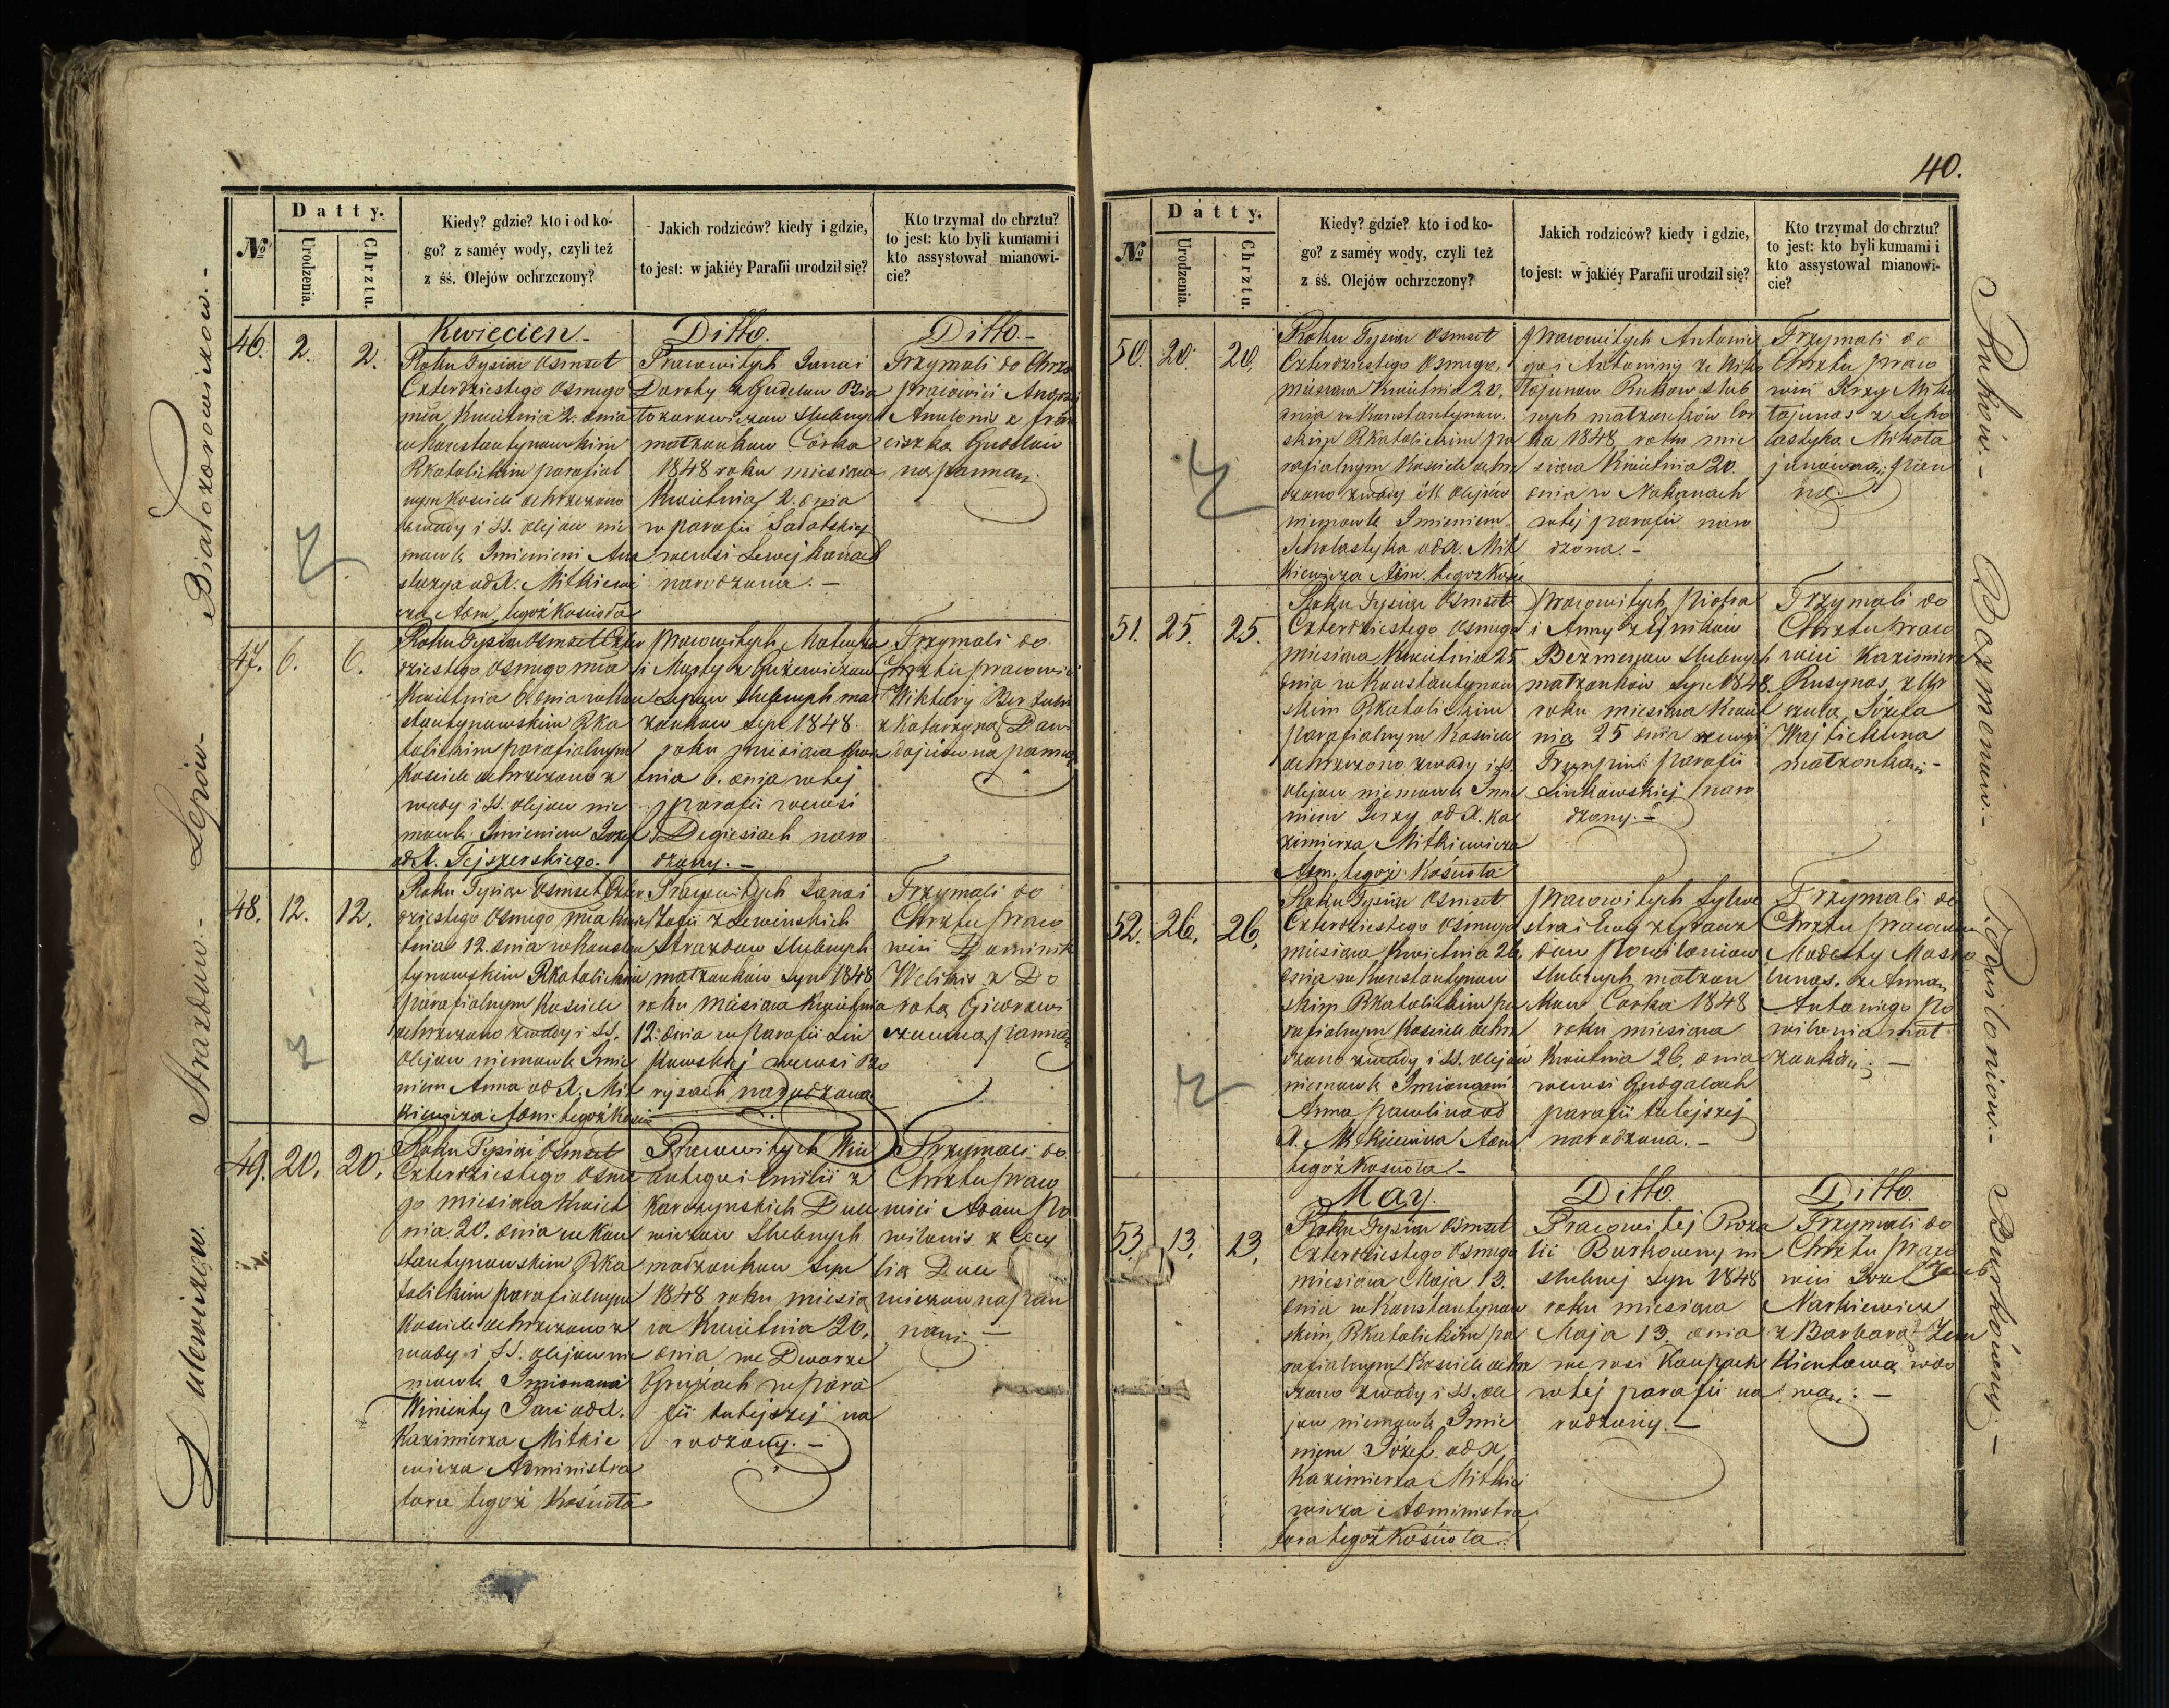 Białozorowiczów.-
Lepiów-
Strazdów-
Dulewiczów.
Datty.
№
Urodzenia.
Chrztu.
Kiedy? gdzie? kto i od ko-
go? z saméy wody, czyli też
z śś. Olejów ochrzczony?
Jakich rodziców? kiedy i gdzie,
to jest: w jakiéy Parafii urodził się?
Kto trzymał do chrztu?
to jest: kto byli kumami i
kto assystował mianowi-
cie?
46.
2.
2.
Kwiecien.-
Roku Tysiąc Osmset
Czterdziestego Osmego
mca Kwietnia 2. dnia
w Konstantynowskim
Rkatolickim parafial
nym Kosciele ochrzczono
z wody i SS. olejow nie
mowle Imieniem Ana
stazya od X. Mitkiewi
cza Adm. tegoż Kościoła
Ditto.
Pracowitych Jana i
Doroty z Gudelow Bia
łozorowiczow slubnych
małżonkow Córka
1848 roku miesiąca
Kwietnia 2. dnia
w parafii Sałatskiej
we wsi
narodzona.-
Ditto.-
Trzymali do Chrztu
pracowici
z Fran
ciszką Gudelow
ną panną.
47.
6.
6.
Roku Tysiąc Osmset Czter
dziestego Osmego mca
Kwietnia 6. dnia w Kon
stantynowskim Rka
tolickim parafialnym
Kosciele ochrzczono z
wody i SS. olejow nie
mowle Imieniem Jozef
od X. Tejszerskiego.
pracowitych Mateusza
i Magdy z
Lepiow slubnych mał
żonkow Syn 1848.
roku miesiąca Kwie
tnia 6. dnia w tej
parafii we wsi
Degiesiach naro
dzony.-
Trzymali do
Chrztu pracowici
Wiktory
z Katarzyną Daw
ną panną
48.
12.
12.
Roku Tysiąc Osmset Czter
dziestego Osmego mca Kwie
tnia 12. dnia w Konstan
tynowskim Rkatolickim
parafialnym Kosciele
ochrzczono z wody i SS.
Olejow niemowle Imie
niem Anna od X. Mit
kiewicza Adm. tegoż Kości
Pracowitych Jana i
Zofii z Lewinskich
Strazdow slubnych
małżonków Syn 1848
roku miesiąca Kwietnia
12. dnia w Parafii Lin
kowskiej we wsi Bo
rysach narodzona
Trzymali do
Chrztu praco
wici Dominik
Welikis z Do
rotą
panną
49.
20.
20.
Roku Tysiąc Osmset
Czterdziestego Osme
go miesiąca Kwiet
nia 20. dnia w Kon
stantynowskim Rka
tolickim parafialnym
Kosciele ochrzczono z
wody i SS. olejow nie
mowle Imionami
Wincenty Jan od X.
Kazimierza Mitkie
wicza Administra
tora tegoż Kościoła
Pracowitych Win
centego i Emilii z
Korczynskich Dule
wiczow Slubnych
małżonkow Syn
1848 roku miesią
ca Kwietnia 20.
dnia we Dworze
Grużach w para
fii tutejszej na
rodzony.-
Trzymali do
Chrztu praco
wici Adam Po
wilonis z Cecy
lią Dule
wiczowną pan
ną.-
40.
Datty.
№
Urodzenia.
Chrztu.
Kiedy? gdzie? kto i od ko-
go? z saméy wody, czyli też
z śś. Olejów ochrzczony?
Jakich rodziców? kiedy i gdzie,
to jest: w jakiéy Parafii urodził się?
Kto trzymał do chrztu?
to jest: kto byli kumami i
kto assystował mianowi-
cie?
50.
20.
20.
Roku Tysiąc Osmset
Czterdziestego Osmego
miesiąca Kwietnia 20.
dnia w Konstantynow.
skim Rkatolickim pa
rafialnym Kosciele ochrz
czono z wody i SS Olejów
niemowle Imieniem
Scholastyka od X. Mit
kiewicza Adm. tegoż Kości
pracowitych Antonie
go i Antoniny ze Miko
łajunow Rukow slub
nych małżonków Cor
ka 1848 roku mie
siąca Kwietnia 20.
dnia w Nakanach
w tej parafii naro
dzona.-
Trzymali do
Chrztu praco
wici Jerzy Miko
łajunas z Scho
lastyką Mikoła
junówną pan
ną.
51.
25.
25.
Roku Tysiąc Osmset
Czterdziestego Osmego
miesiąca Kwietnia 25
dnia w Konstantynow
skim Rkatolickim
Parafialnym Kosciele
ochrzczono z wody i SS.
olejow niemowle Imie
niem Jerzy od X. Ka
zimierza Mitkiewicza
Adm. tegoż Kościoła
pracowitych Piotra
i Anny z
Bezmenow slubnych
małżonków Syn 1848.
roku miesiąca Kwiet
nia 25 dnia
parafii
Linkowskiej naro
dzony.-
Trzymali do
Chrztu praco
wici Kazimierz
Rusynas z
Józefa
małżonką.-
52.
26.
26.
Roku Tysiąc Osmset
Czterdziestego Osmego
miesiąca Kwietnia 26.
dnia w Konstantynow
skim Rkatolickim pa
rafialnym Kosciele ochrz
czono z wody i SS. olejów
niemowle Imionami
Anna Paulina od
X. Mitkiewicza Adm
tegoż Kościoła-
pracowitych Sylwe
stra i Ewy
Powiloniow
slubnych małżon
kow Corka 1848
roku miesiąca
Kwietnia 26. dnia
we wsi Gudgalach
parafii tutejszej
narodzona.-
Trzymali do
Chrztu pracowici
Modesty
ze Anną
Antoniego Po
wilonia mał
żonką.-
May.
53.
13.
13.
Roku Tysiąc Osmset
Czterdziestego Osmego
miesiąca Maja 13.
dnia w Konstantynow
skim Rkatolickim pa
rafialnym Kosciele ochrz
czono z wody i SS. ole
jow niemowle Imie
niem Józef od X.
Kazimierza Mitkie
wicza Administra
tora tegoż Kościoła.
Ditto.
Pracowitej Roza
lii Burkowny nie
slubnej Syn 1848
roku miesiąca
Maja 13. dnia
we wsi
w tej parafii na
rodzony.-
Ditto.
Trzymali do
Chrztu praco
wici
Narkiewicz
z Barbarą
wdo
wą.-
Rukow.-
Bezmenów.-
Powiloniow.-
Burkówny.-